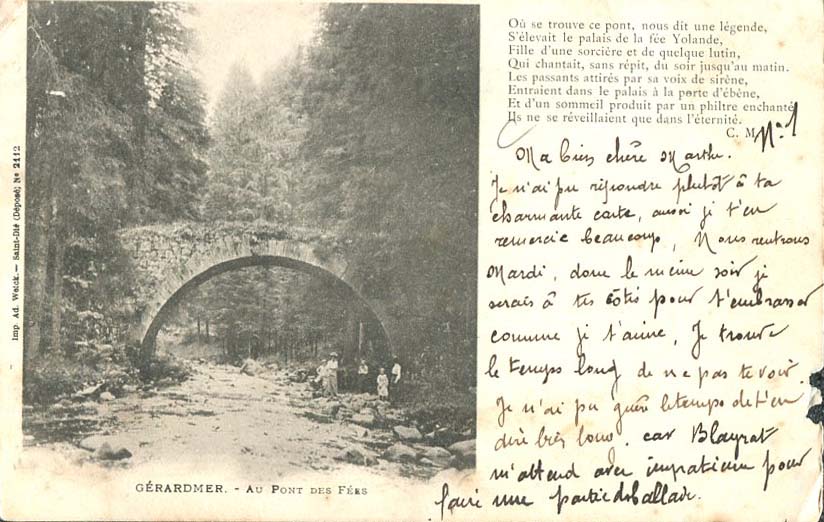 Où se trouve ce pont, nous dit une légende,
S'élevait le palais de la fée Yolande,
Fille d'une sorcière et de quelque lutin,
Qui chantait, sans répit, du soir jusqu'au matin.
Les passants attirés par sa voix de sirène,
Entraient dans le palais à la porte d'ébène,
Et d'un sommeil produit par un philtre enchanté
Ils ne se réveillaient que dans l'éternité.
C. M.
N° 1
Ma bien chère Marthe.
Je n'ai pu répondre plutôt à ta
charmante carte, aussi je t'en
remercie beaucoup, Nous rentrons
Mardi, donc le même soir je
serais à tes côtés pour t'embrasser
comme je t'aime, Je trouve
le temps long de ne pas te voir.
Je n'ai pu guère le temps de t'en
dire bien long, car
m'attend avec impatience pour
faire une partie de ballade.
Imp. Ad. Weick. — Saint-Dié (Déposé) N° 2112
GÉRARDMER. - AU PONT DES FÉES